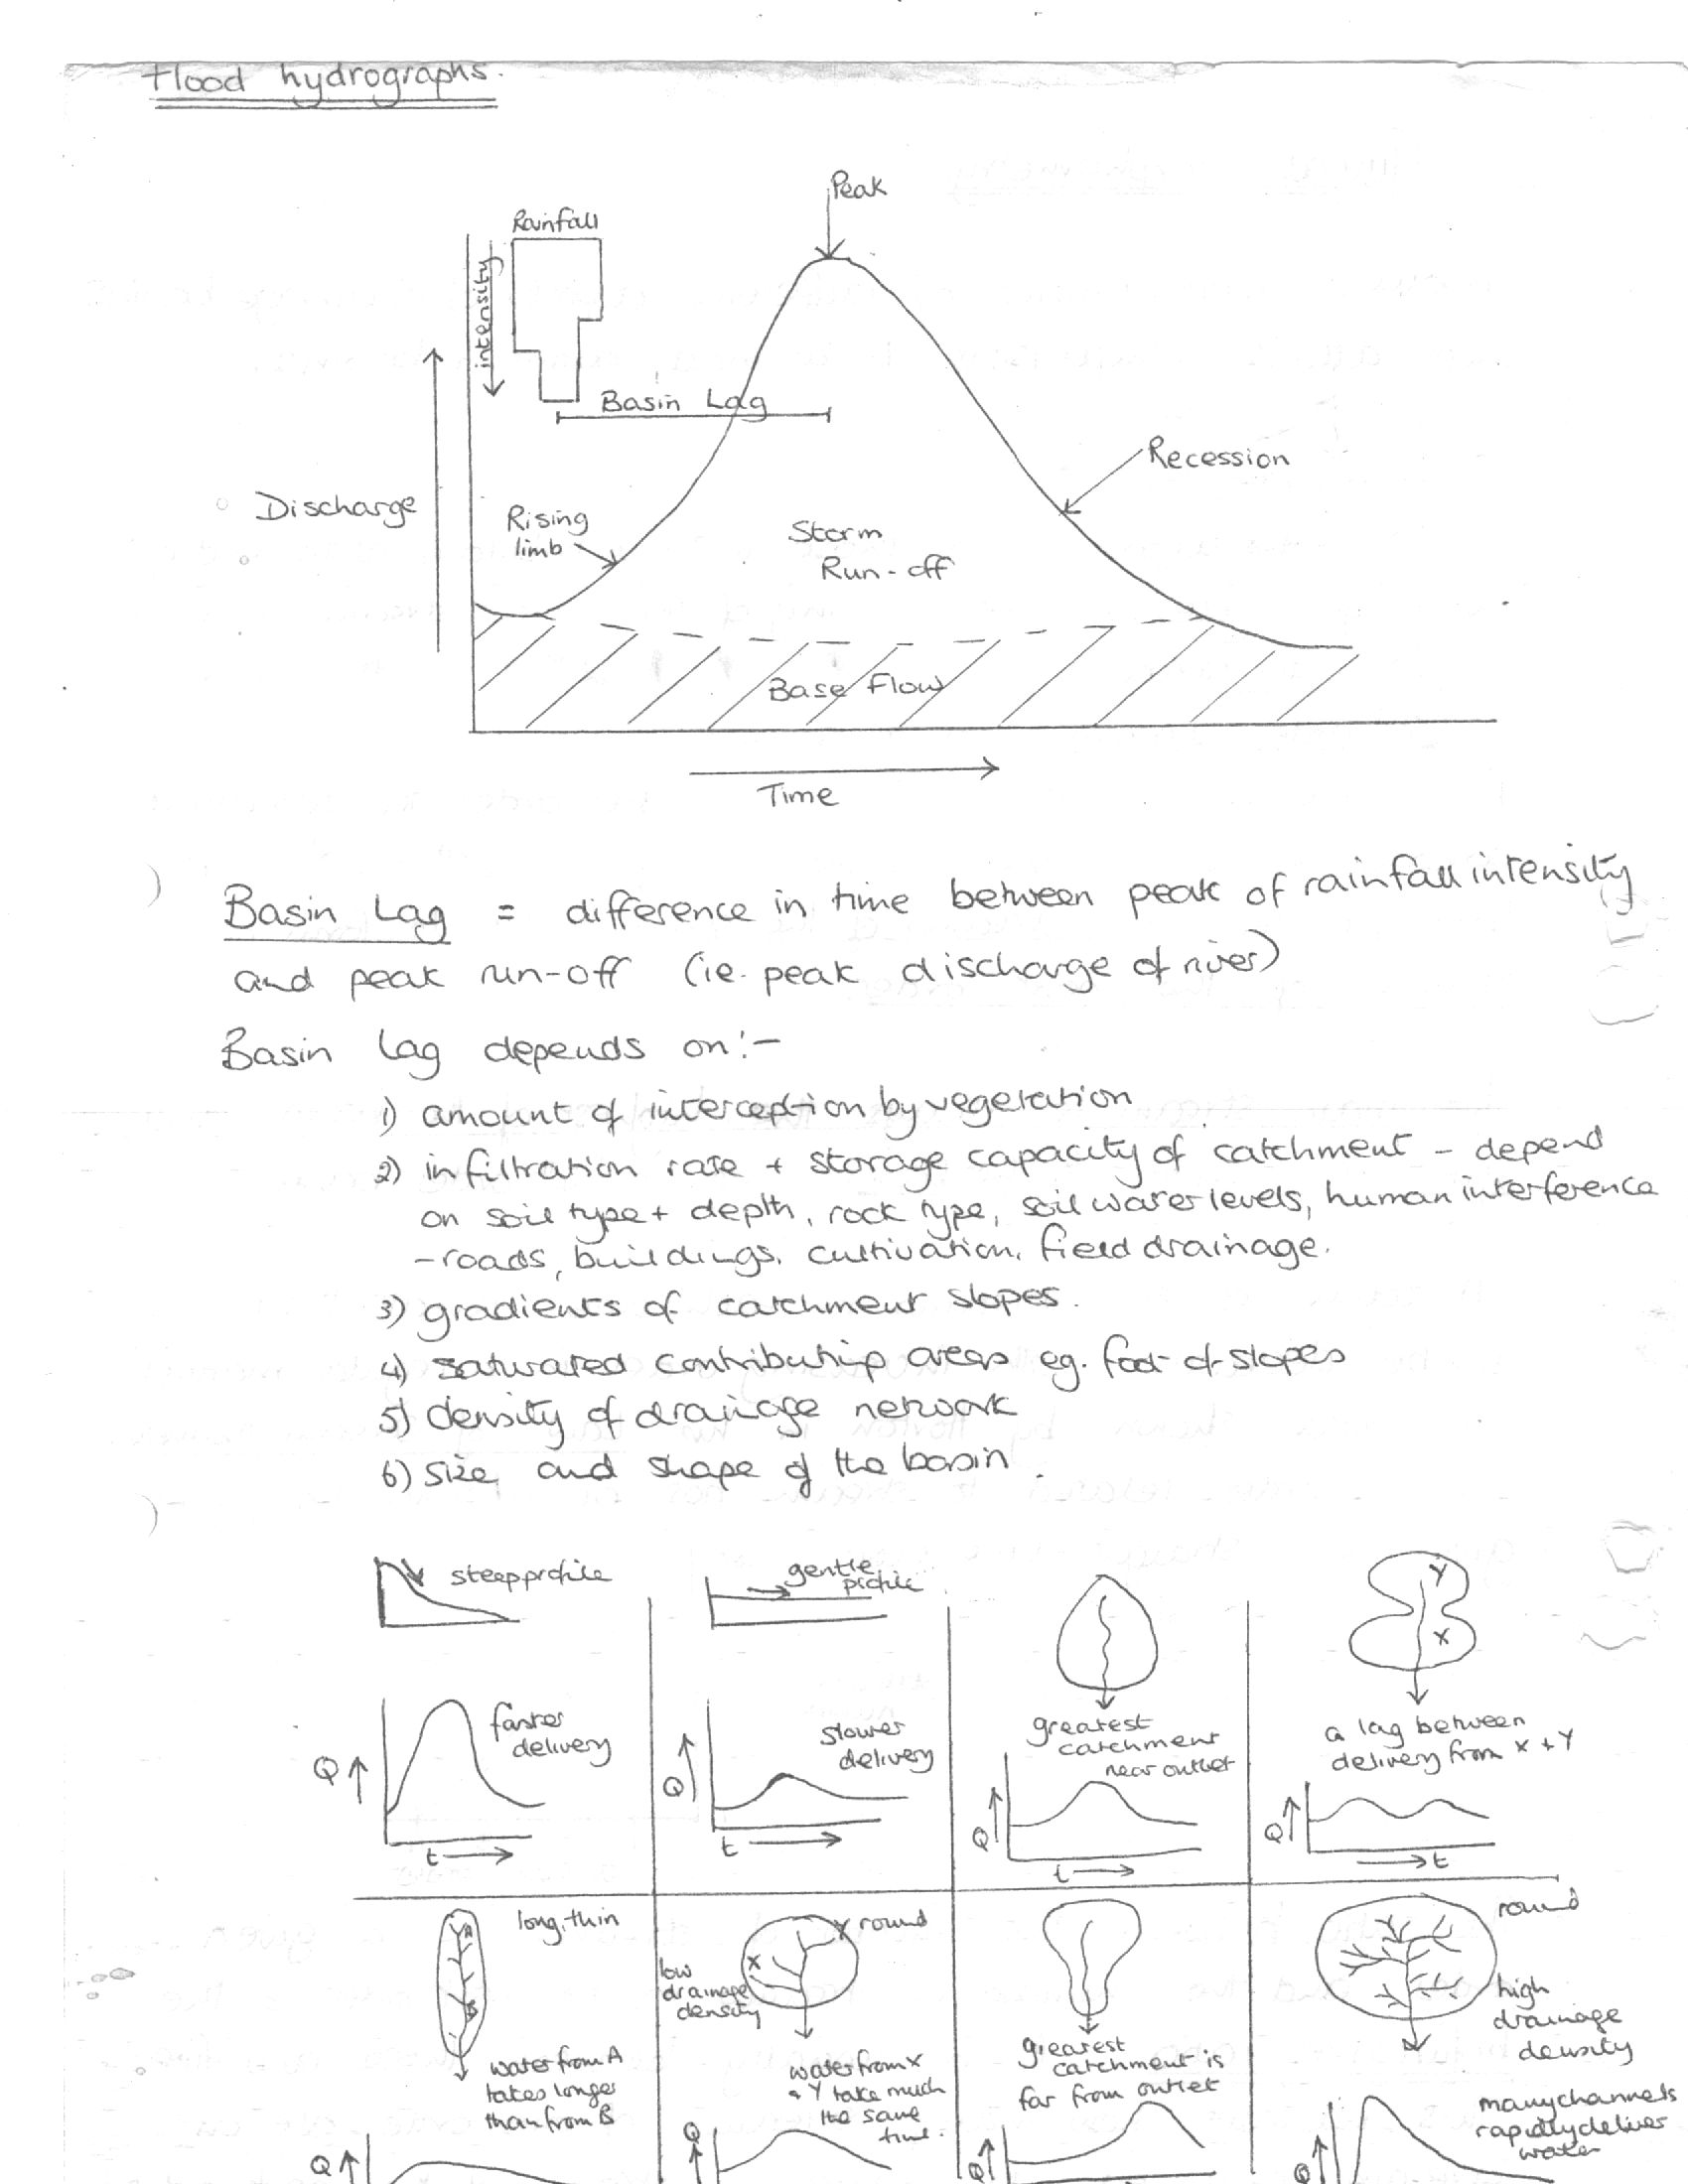 Flood hydrographs.
Peak
Rainfall
intensity
Basin Lag
Recession
Discharge
Rising
limb
Storm
Run-off
Base Flow
Time
Basin Lag = difference in time between peak of rainfall intensity
and peak run-off (ie. peak discharge of river)
Basin lag depends on:-
1) amount of interception by vegetation
2) infiltration rate + storage capacity of catchment - depend
on soil type + depth, rock type, soil water levels, human interference
- roads, buildings, cultivation, field drainage.
3) gradients of catchment slopes.
4) saturated contributing areas eg. foot of slopes
5) density of drainage network
6) size and shape of the basin.
steep profile
faster
delivery
Q
t
gentle
profile
slower
delivery
Q
t
greatest
catchment
near outlet
Q
t
Y
X
a lag between
delivery from X + Y
Q
t
long, thin
A
B
water from A
takes longer
than from B
Q
Y round
X
low
drainage
density
water from X
+ Y take much
the same
time.
Q
greatest
catchment is
far from outlet
Q
round
high
drainage
density
many channels
rapidly deliver
water
Q